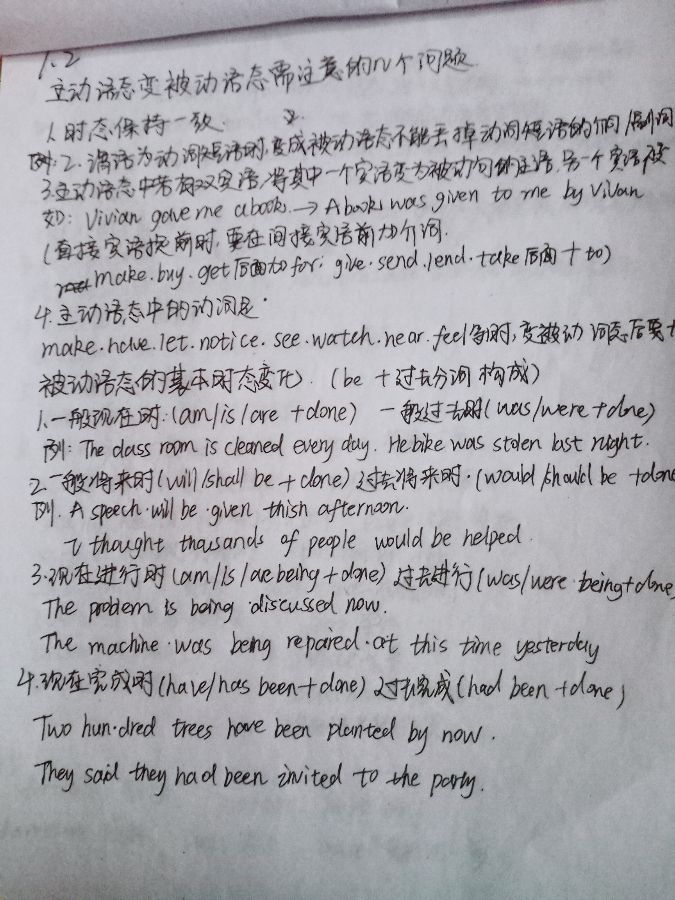 1.2
主动语态变被动语态需注意的几个问题
1.时态保持一致.
2.谓语为动词短语时,变成被动语态不能丢掉动词短语的介/副词
3.主动语态中若有双宾语,将其中一个宾语变为被动句的主语,另一个宾语
如: Vivian gave me abook. → A book was given to me by Vivan
(直接宾语提前时,要在间接宾语前加介词.
make.buy.get后面to for; give.send.lend.take后面十to)
4.主动语态中的动词是.
make.have.let.notice.see.watch.hear.feel等时,变被动词态后要
被动语态的基本时态变化.(be+过去分词构成)
1.一般现在时:(am/is/are +done) 一般过去时(was/were+done)
例: The class room is cleaned every day. He bike was stolen last night.
2.一般将来时(will/shall be+done) 过去将来时.(would/should be +done
例. A speech will be given thish afternoon.
I thought thousands of people would be helped.
3.现在进行时(am/is/are being+done) 过去进行(was/were being+done)
The problem is being discussed now.
The machine was being repaired at this time yesterday
4.现在完成时(have/has been+done) 过去完成(had been+done)
Two hundred trees have been planted by now.
They said they had been invited to the party.